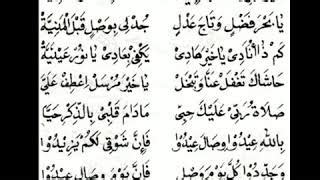 يَا بَحْرَ فَضْلٍ وَتَاجَ عَدْلٍ جُدْ لِي بِوَصْلٍ قَبْلَ الْمَنِيَّة
كَمْ ذَا أُنَادِي يَا خَيْرَ هَادِي يَكْفِي بِعَادِي يَا نُوْرَ عَيْنَيَّة
حَاشَاكَ تَغْفَلْ عَنَّا وَتَبْخَلْ يَا خَيْرَ مُرْسَلْ اِعْطِفْ عَلَيَّ
صَلَاةُ رَبِّي عَلَيْكَ حِبِّي مَادَامَ قَلْبِي بِالذِّكْرِ حَيَّا
بِاللّٰهِ عِيْدُوْا وِصَالِ عِيْدُوْا فَإِنَّ شَوْقِي لَكُمْ يَزِيْدُوْا
وَجَدِّدُوْا كُلَّ يَوْمِ وَصْلٍ فَإِنَّ يَوْمَ وِصَالِ عِيْدُوْا